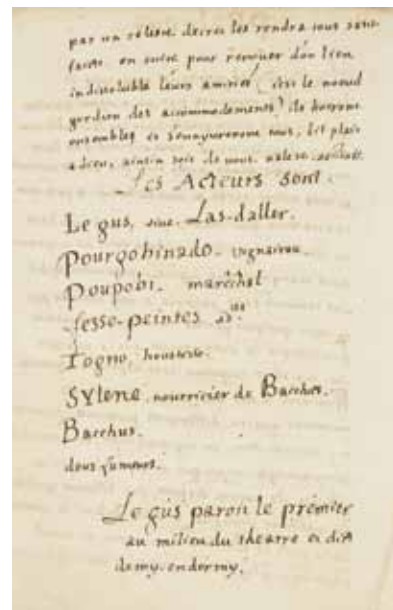 par un celeste decret les rendra tous satis-
faits en suite pour renouer d'un lien
indissoluble leurs amities (c'est le noeud
gordien des accommodements) ils boiront
ensembles et s'enyureront tous, s'il plait
a dieu, ainsin soit de nous. valete
Les Acteurs sont.
Le gus, Las-d'aller.
Pourgobinado. vigneron.
Poupobi. maréchal
fesse-peintes
Togno, housterio.
SYlene nourricier de Bacchus.
Bacchus.
deus fumeurs.
Le gus paroit le prémier
au milieu du theatre et dit
demy. endormy.